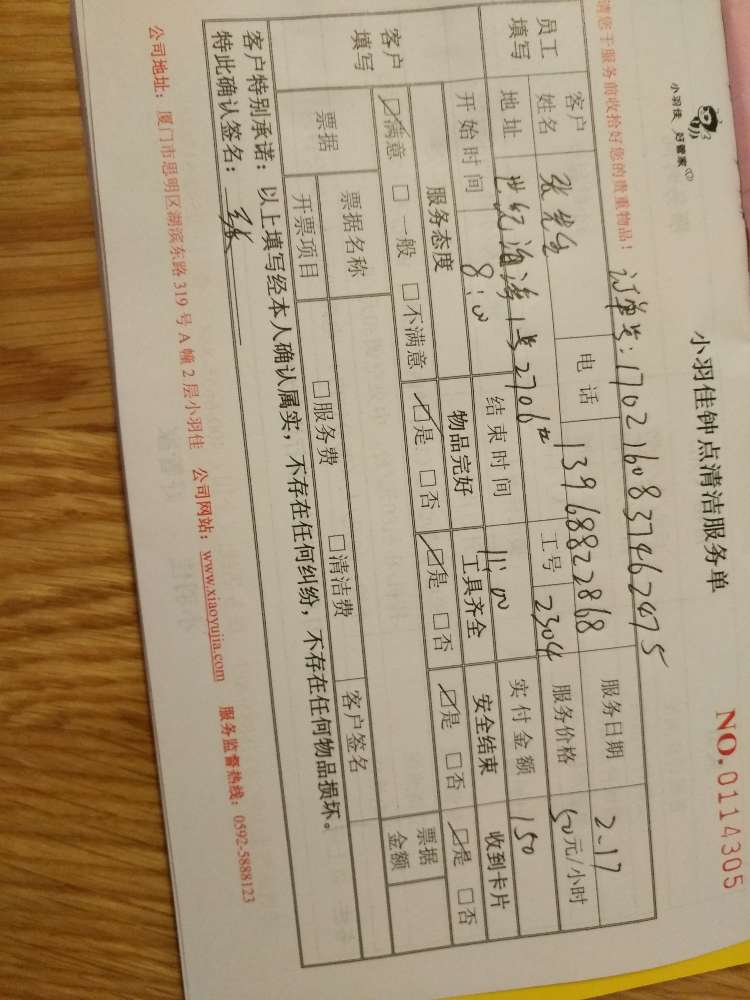 小羽佳 好管家
小羽佳钟点清洁服务单
NO.0114305
请您于服务前收拾好您的贵重物品!
订单号:1702160837462475
员工填写
客户姓名 张先生 电话 13968822868 服务日期 2.17
地址 世纪海湾1号2706# 工号 2304 服务价格 50元/小时
开始时间 8:00 结束时间 11:00 实付金额 150
客户填写
服务态度 物品完好 工具齐全 安全结束 收到卡片
☑满意 □一般 □不满意 ☑是 □否 ☑是 □否 ☑是 □否 ☑是 □否
票据 票据名称 票据金额
开票项目 □服务费 □清洁费 客户签名
客户特别承诺:以上填写经本人确认属实,不存在任何纠纷,不存在任何物品损坏。
特此确认签名:张
公司地址:厦门市思明区湖滨东路319号A幢2层小羽佳 公司网站:www.xiaoyujia.com 服务监督热线:0592-5888123